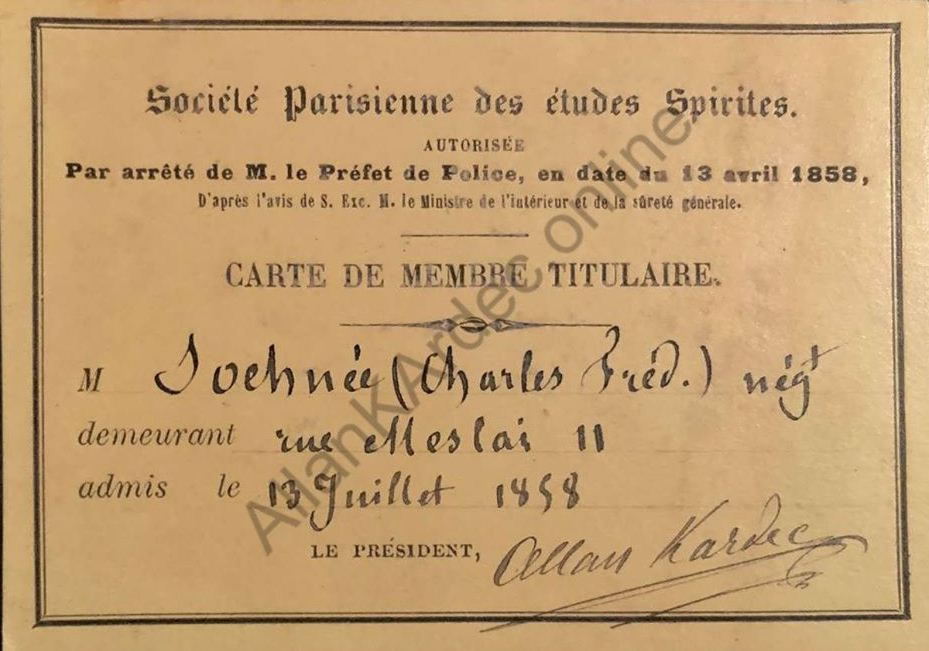 Société Parisienne des études Spirites.
AUTORISÉE
Par arrêté de M. le Préfet de Police, en date du 13 avril 1858,
D'après l'avis de S. Exc. M. le Ministre de l'intérieur et de la sûreté générale.
CARTE DE MEMBRE TITULAIRE.
M Soehnée (Charles Fréd.) négt
demeurant rue Meslai 11
admis le 13 Juillet 1858
LE PRÉSIDENT, Allan Kardec
AllanKArdec.online